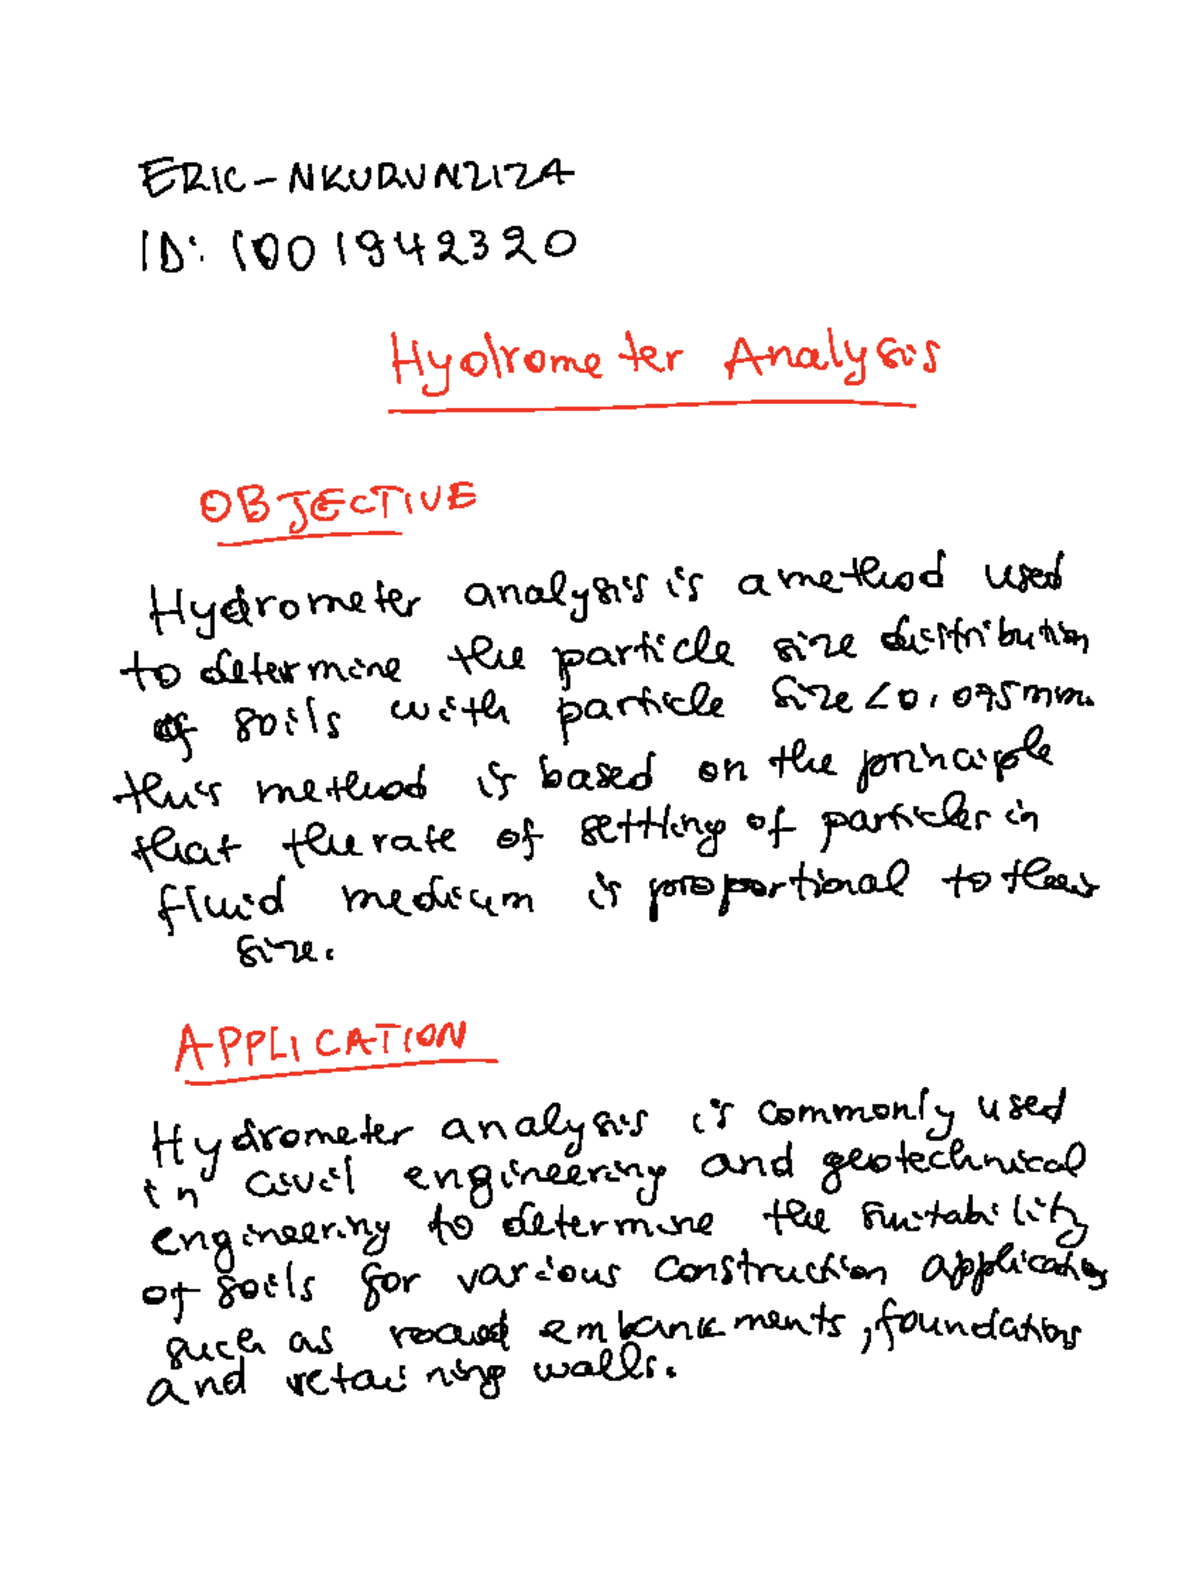 ERIC-NKURUNZIZA
ID: 1001942320
Hydrometer Analysis
OBJECTIVE
Hydrometer analysis is a method used
to determine the particle size distribution
of soils with particle size <0.075mm.
this method is based on the principle
that the rate of settling of particles in
fluid medium is proportional to their
size.
APPLICATION
Hydrometer analysis is commonly used
in civil engineering and geotechnical
engineering to determine the suitability
of soils for various construction applications
such as road embankments, foundations
and retaining walls.